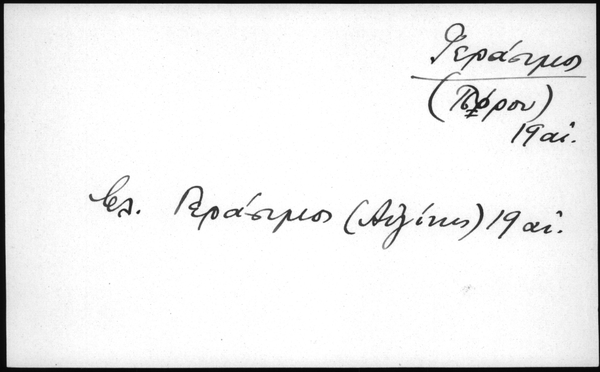 Γεράσιμος
(Πόρου)
19 αἰ.
βλ. Γεράσιμος (Αἰγίνης) 19 αἰ.